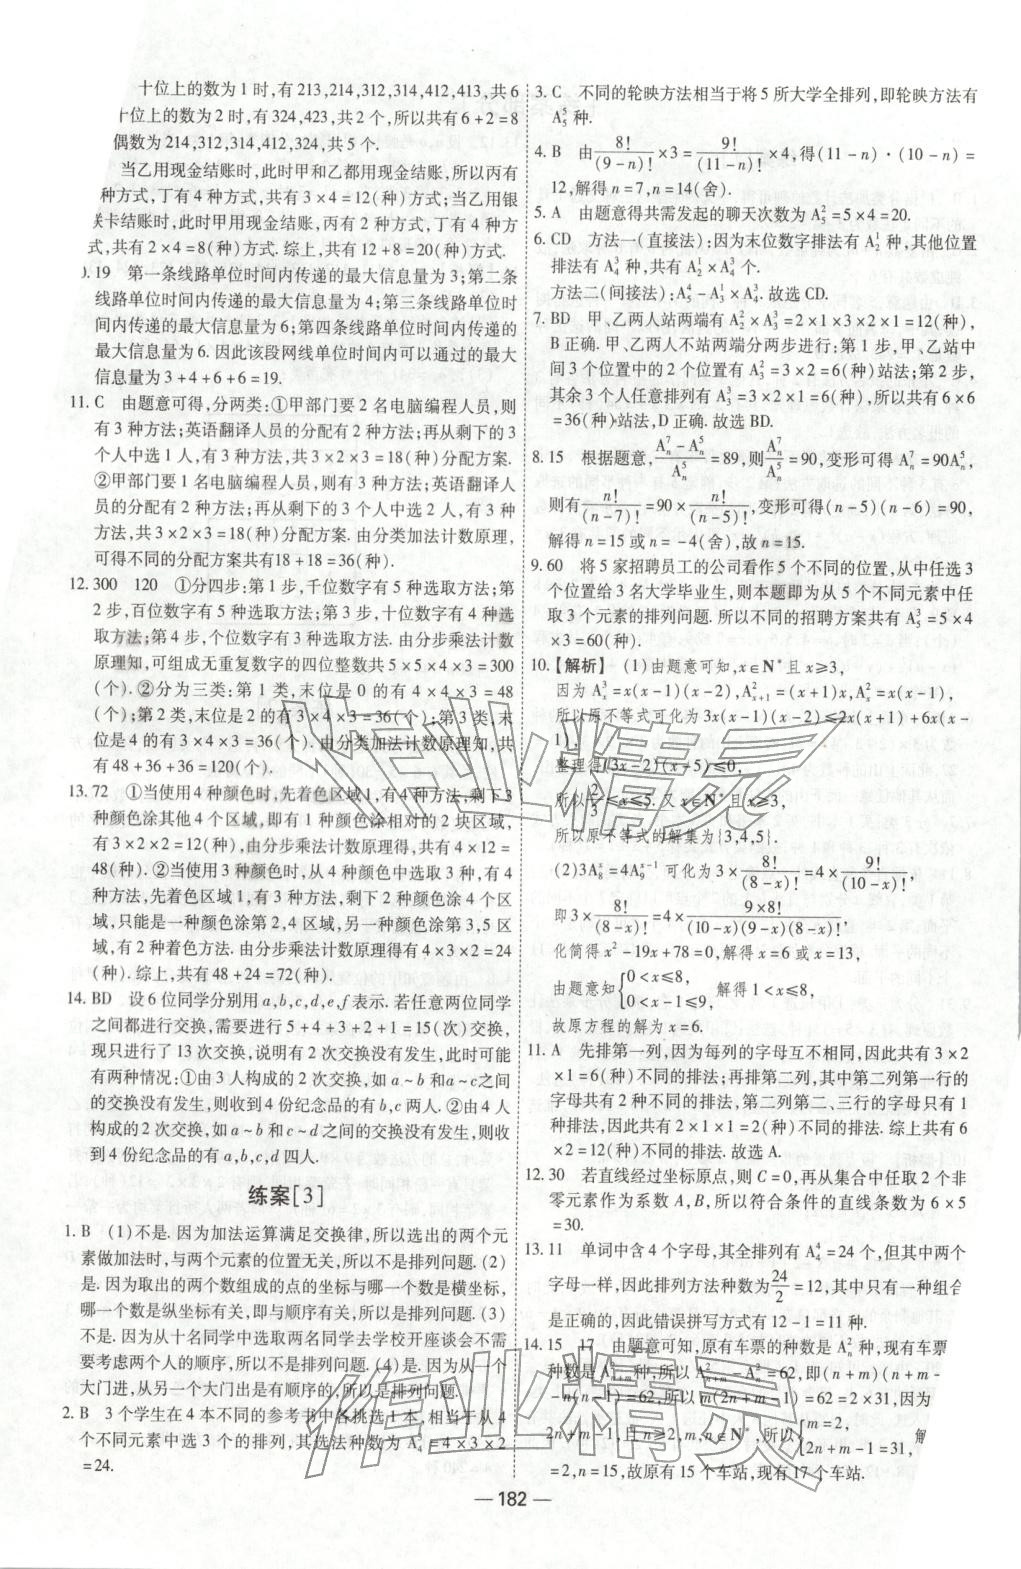 十位上的数为 1 时,有 213,214,312,314,412,413,共 6
十位上的数为 2 时,有 324,423,共 2 个,所以共有 6+2=8
偶数为 214,312,314,412,324,共 5 个.
当乙用现金结账时,此时甲和乙都用现金结账,所以丙有
种方式,丁有 4 种方式,共有 3×4=12(种)方式;当乙用银
联卡结账时,此时甲用现金结账,丙有 2 种方式,丁有 4 种方
式,共有 2×4=8(种)方式. 综上,共有 12+8=20(种)方式.
0. 19 第一条线路单位时间内传递的最大信息量为 3;第二条
线路单位时间内传递的最大信息量为 4;第三条线路单位时
间内传递的最大信息量为 6;第四条线路单位时间内传递的
最大信息量为 6. 因此该段网线单位时间内可以通过的最大
信息量为 3+4+6+6=19.
11. C 由题意可得,分两类:①甲部门要 2 名电脑编程人员,则
有 3 种方法;英语翻译人员的分配有 2 种方法;再从剩下的 3
个人中选 1 人,有 3 种方法,共 3×2×3=18(种)分配方案.
②甲部门要 1 名电脑编程人员,则有 3 种方法;英语翻译人
员的分配有 2 种方法;再从剩下的 3 个人中选 2 人,有 3 种
方法,共 3×2×3=18(种)分配方案. 由分类加法计数原理,
可得不同的分配方案共有18+18=36(种).
12. 300 120 ①分四步:第 1 步,千位数字有 5 种选取方法;第
2 步,百位数字有 5 种选取方法;第 3 步,十位数字有 4 种选
取方法;第 4 步,个位数字有 3 种选取方法. 由分步乘法计数
原理知,可组成无重复数字的四位整数共 5×5×4×3=300
(个). ②分为三类:第 1 类,末位是 0 的有 3×4×4=48
(个);第 2 类,末位是 2 的有 3×4×3=36(个);第 3 类,末
位是 4 的有 3×4×3=36(个). 由分类加法计数原理知,共
有 48+36+36=120(个).
13. 72 ①当使用 4 种颜色时,先着色区域 1,有 4 种方法,剩下 3
种颜色涂其他 4 个区域,即有 1 种颜色涂相对的 2 块区域,
有 3×2×2=12(种),由分步乘法计数原理得,共有 4×12=
48(种). ②当使用 3 种颜色时,从 4 种颜色中选取 3 种,有 4
种方法,先着色区域 1,有 3 种方法,剩下 2 种颜色涂 4 个区
域,只能是一种颜色涂第 2,4 区域,另一种颜色涂第 3,5 区
域,有 2 种着色方法. 由分步乘法计数原理得有 4×3×2=24
(种). 综上,共有 48+24=72(种).
14. BD 设 6 位同学分别用 a,b,c,d,e,f 表示. 若任意两位同学
之间都进行交换,需进行 5+4+3+2+1=15(次)交换,
现只进行了 13 次交换,说明有 2 次交换没有发生,此时可能
有两种情况:①由 3 人构成的 2 次交换,如 a~b 和 a~c之间
的交换没有发生,则收到 4 份纪念品的有 b,c 两人. ②由 4 人
构成的 2 次交换,如 a~b 和 c~d 之间的交换没有发生,则收
到 4 份纪念品的有 a,b,c,d 四人.
练案[3]
1. B (1)不是. 因为加法运算满足交换律,所以选出的两个元
素做加法时,与两个元素的位置无关,所以不是排列问题. (2)
是. 因为取出的两个数组成的点的坐标与哪一个数是横坐标,
哪一个数是纵坐标有关,即与顺序有关,所以是排列问题. (3)
不是. 因为从十名同学中选取两名同学去学校开座谈会不需
要考虑两个人的顺序,所以不是排列问题. (4)是. 因为从一个
大门进,从另一个大门出是有顺序的,所以是排列问题.
2. B 3 个学生在 4 本不同的参考书中各挑选 1 本,相当于从 4
个不同元素中选 3 个的排列,其选法种数为 A₄³=4×3×2
=24.
3. C 不同的轮映方法相当于将 5 所大学全排列,即轮映方法有
A₅⁵ 种.
4. B 由 8!/(9-n)!×3=9!/(11-n)!×4,得(11-n)·(10-n)=
12,解得 n=7,n=14(舍).
5. A 由题意得共需发起的聊天次数为 A₅²=5×4=20.
6. CD 方法一(直接法):因为末位数字排法有 A₂¹ 种,其他位置
排法有 A₄³ 种,共有 A₂¹×A₄³ 个.
方法二(间接法):A₅⁴-A₃¹×A₄³. 故选 CD.
7. BD 甲、乙两人站两端有 A₂²×A₃³=2×1×3×2×1=12(种),
B 正确. 甲、乙两人不站两端分两步进行:第 1 步,甲、乙站中
间 3 个位置中的 2 个位置有 A₃²=3×2=6(种)站法;第 2 步,
其余 3 个人任意排列有 A₃³=3×2×1=6(种),所以共有 6×6
=36(种)站法,D 正确. 故选 BD.
8. 15 根据题意,(Aₙ⁷-Aₙ⁵)/Aₙ⁵=89,则Aₙ⁷/Aₙ⁵=90,变形可得 Aₙ⁷=90Aₙ⁵,
则有n!/(n-7)!=90×n!/(n-5)!,变形可得(n-5)(n-6)=90,
解得 n=15 或 n=-4(舍),故 n=15.
9. 60 将 5 家招聘员工的公司看作 5 个不同的位置,从中任选 3
个位置给 3 名大学毕业生,则本题即为从 5 个不同元素中任
取 3 个元素的排列问题. 所以不同的招聘方案共有 A₅³=5×4
×3=60(种).
10. 【解析】 (1)由题意可知,x∈N* 且 x≥3,
因为 Aₓ³=x(x-1)(x-2),Aₓ₊₁²=(x+1)x,Aₓ²=x(x-1),
所以原不等式可化为 3x(x-1)(x-2)≤2x(x+1)+6x(x-
1),
整理得(3x-2)(x-5)≤0,
所以 2/3≤x≤5. 又 x∈N* 且 x≥3,
所以原不等式的解集为{3,4,5}.
(2)3A₈ˣ=4A₉ˣ⁻¹ 可化为 3×8!/(8-x)!=4×9!/(10-x)!,
即 3×8!/(8-x)!=4×9×8!/((10-x)(9-x)(8-x)!),
化简得 x²-19x+78=0,解得 x=6 或 x=13,
由题意知{0<x≤8, 0<x-1≤9, 解得 1<x≤8,
故原方程的解为 x=6.
11. A 先排第一列,因为每列的字母互不相同,因此共有 3×2
×1=6(种)不同的排法;再排第二列,其中第二列第一行的
字母共有 2 种不同的排法,第二列第二、三行的字母只有 1
种排法,因此共有 2×1×1=2(种)不同的排法. 综上共有 6
×2=12(种)不同的排法. 故选 A.
12. 30 若直线经过坐标原点,则 C=0,再从集合中任取 2 个非
零元素作为系数 A,B,所以符合条件的直线条数为 6×5
=30.
13. 11 单词中含 4 个字母,其全排列有 A₄⁴=24 个,但其中两个
字母一样,因此排列方法种数为24/2=12,其中只有一种组合
是正确的,因此错误拼写方式有 12-1=11 种.
14. 15 17 由题意可知,原有车票的种数是 Aₙ² 种,现有车票
种数是 Aₙ₊ₘ² 种,所以 Aₙ₊ₘ²-Aₙ²=62,即(n+m)(n+m-
1)-n(n-1)=62,所以 m(2n+m-1)=62=2×31,因为
2n+m-1>m≥2,m,n∈N*,所以{m=2, 2n+m-1=31, 解
=2,n=15,故原有 15 个车站,现有 17 个车站.
— 182 —
作业精灵
作业精灵